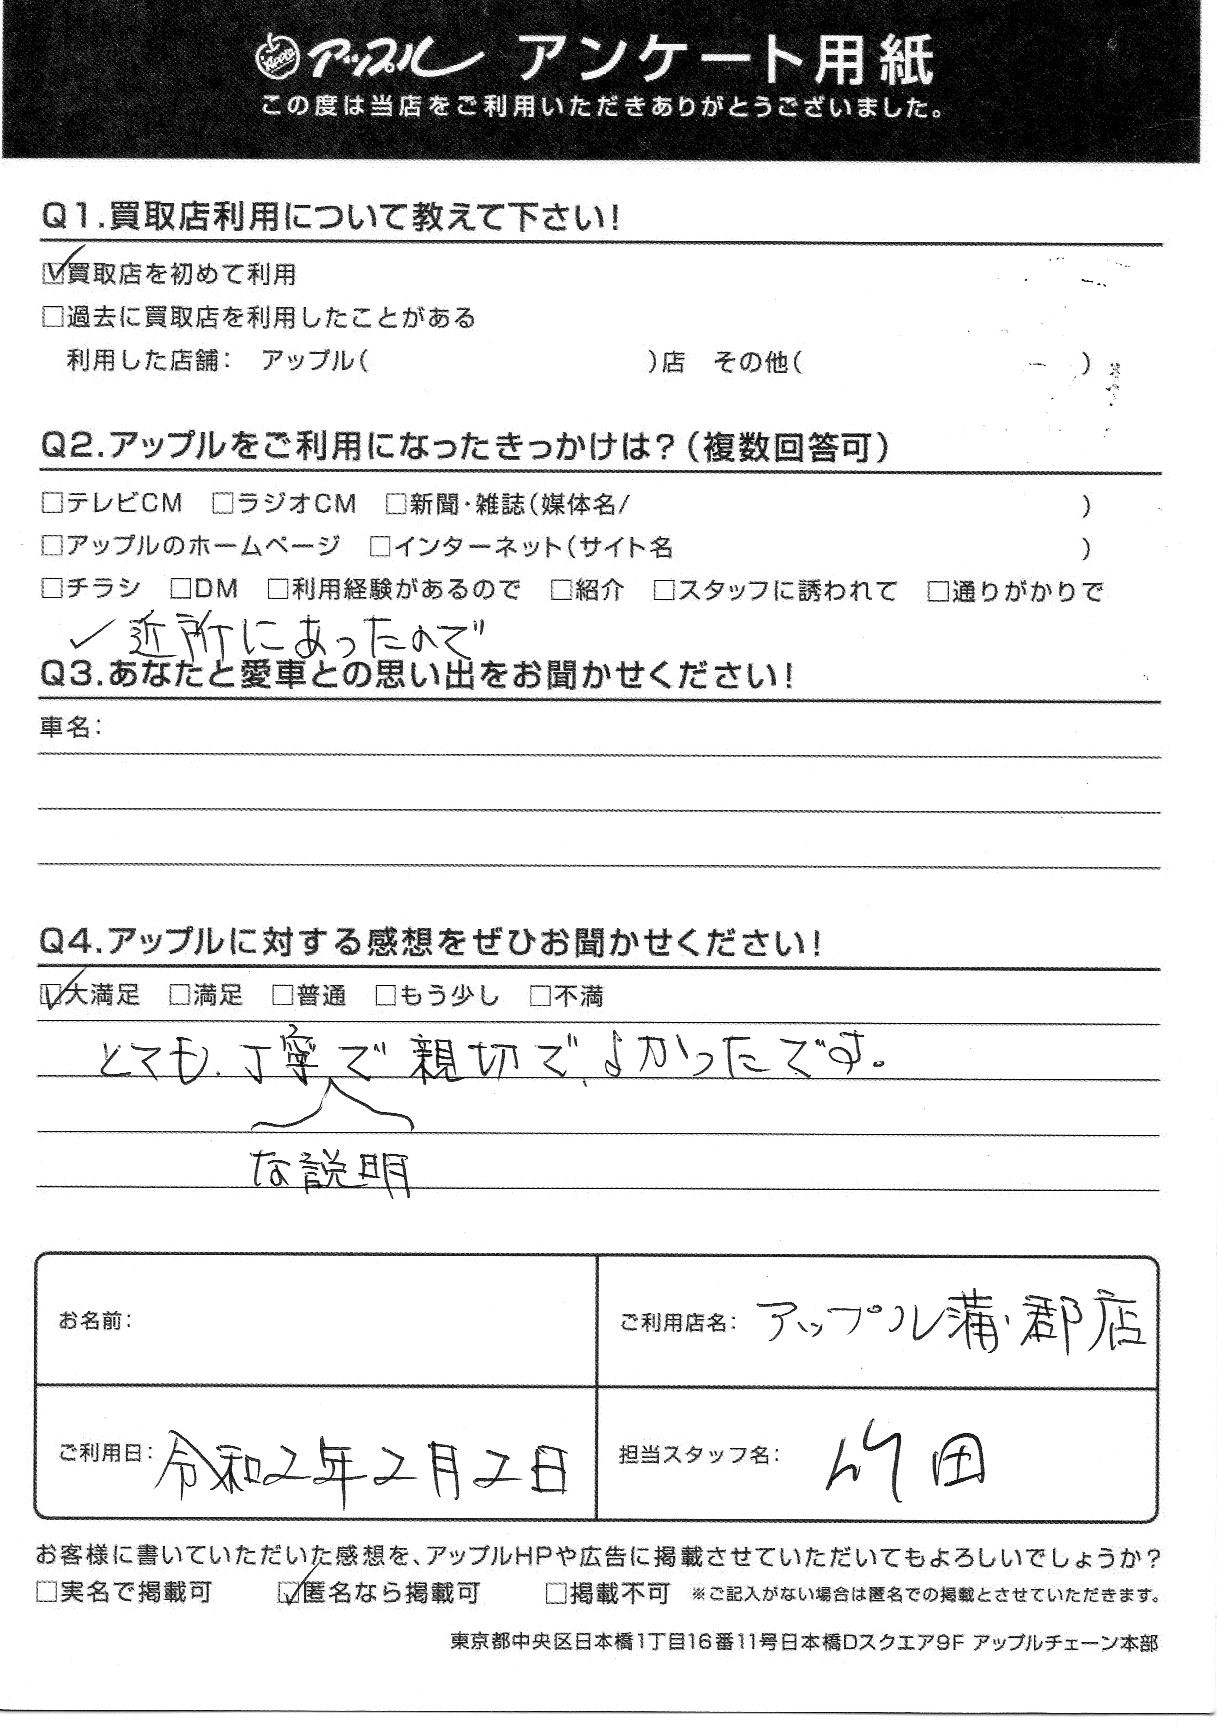 アップル アンケート用紙
この度は当店をご利用いただきありがとうございました。
Q1.買取店利用について教えて下さい!
☑買取店を初めて利用
□過去に買取店を利用したことがある
利用した店舗: アップル( )店 その他( )
Q2.アップルをご利用になったきっかけは?(複数回答可)
□テレビCM □ラジオCM □新聞・雑誌(媒体名/ )
□アップルのホームページ □インターネット(サイト名 )
□チラシ □DM □利用経験があるので □紹介 □スタッフに誘われて □通りがかりで
✓近所にあったので
Q3.あなたと愛車との思い出をお聞かせください!
車名:
Q4.アップルに対する感想をぜひお聞かせください!
☑大満足 □満足 □普通 □もう少し □不満
とても、丁寧で親切で、よかったです。
な説明
お名前:
ご利用店名: アップル蒲郡店
ご利用日: 令和2年2月2日
担当スタッフ名: 竹田
お客様に書いていただいた感想を、アップルHPや広告に掲載させていただいてもよろしいでしょうか?
□実名で掲載可 ☑匿名なら掲載可 □掲載不可 ※ご記入がない場合は匿名での掲載とさせていただきます。
東京都中央区日本橋1丁目16番11号日本橋Dスクエア9F アップルチェーン本部